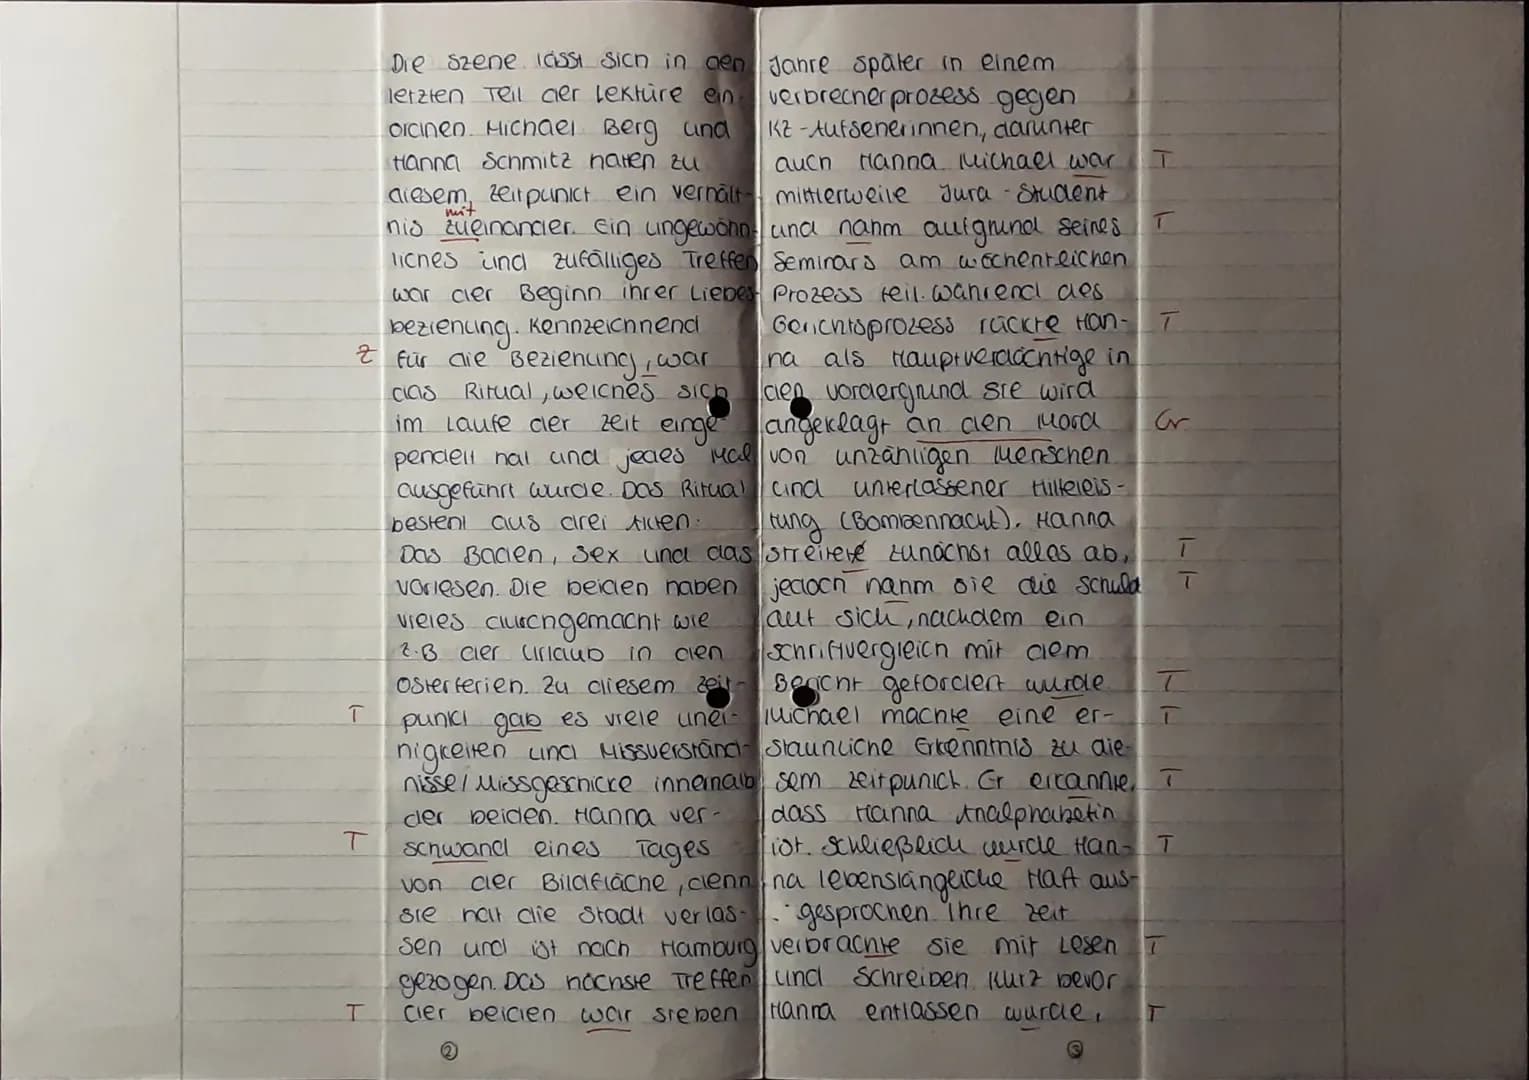 Die Szene lässt sich in den
letzten Teil der Lektüre ein-
ordnen. Michael Berg und
Hanna Schmitz haten zu
diesem Zeitpunkt ein Verhält-
mit
nis zueinander. Ein ungewöhn-
liches und zufälliges Treffen
war der Beginn ihrer Liebes-
beziehung. Kennzeichnend
Z für die Beziehung, war
das Ritual, welches sich
im Laufe der Zeit einge-
pendelt hat und jedes Mal
ausgeführt wurde. Das Ritual
besteht aus drei Akten:
Das Baden, Sex und das
Vorlesen. Die beiden haben
vieles durchgemacht wie
z.B der Urlaub in den
Osterferien. Zu diesem Zeit-
T punkt gab es viele Unei-
nigkeiten und Missverständ-
nisse/Missgeschicke innerhalb
der beiden. Hanna ver-
T schwand eines Tages
von der Bildfläche, denn
sie hat die Stadt verlas-
sen und ist nach Hamburg
gezogen. Das nächste Treffen
T der beiden war sieben
2
Jahre später in einem
Verbrecherprozess gegen
KZ-Aufseherinnen, darunter
auch Hanna. Michael war T
mittlerweile Jura-Student
und nahm aufgrund seines T
Seminars am wöchentlichen
Prozess teil. Während des
Gerichtsprozess rückte Han- T
na als Hauptverdächtige in
den Vordergrund. Sie wird
angeklagt an den Mord Gr
von unzähligen Menschen
und unterlassener Hilfeleis-
tung (Bombennacht). Hanna
streitete zunächst alles ab, T
jedoch nahm sie die Schuld T
auf sich, nachdem ein
Schriftvergleich mit dem
Bericht gefordert wurde. T
Michael machte eine er- T
staunliche Erkenntnis zu die-
sem Zeitpunkt. Er erkannte, T
dass Hanna Analphabetin
ist. Schließlich wurde Han- T
na lebenslängliche Haft aus-
gesprochen. Ihre Zeit
verbrachte sie mit Lesen T
und Schreiben. Kurz bevor
Hanna entlassen wurde, T
3